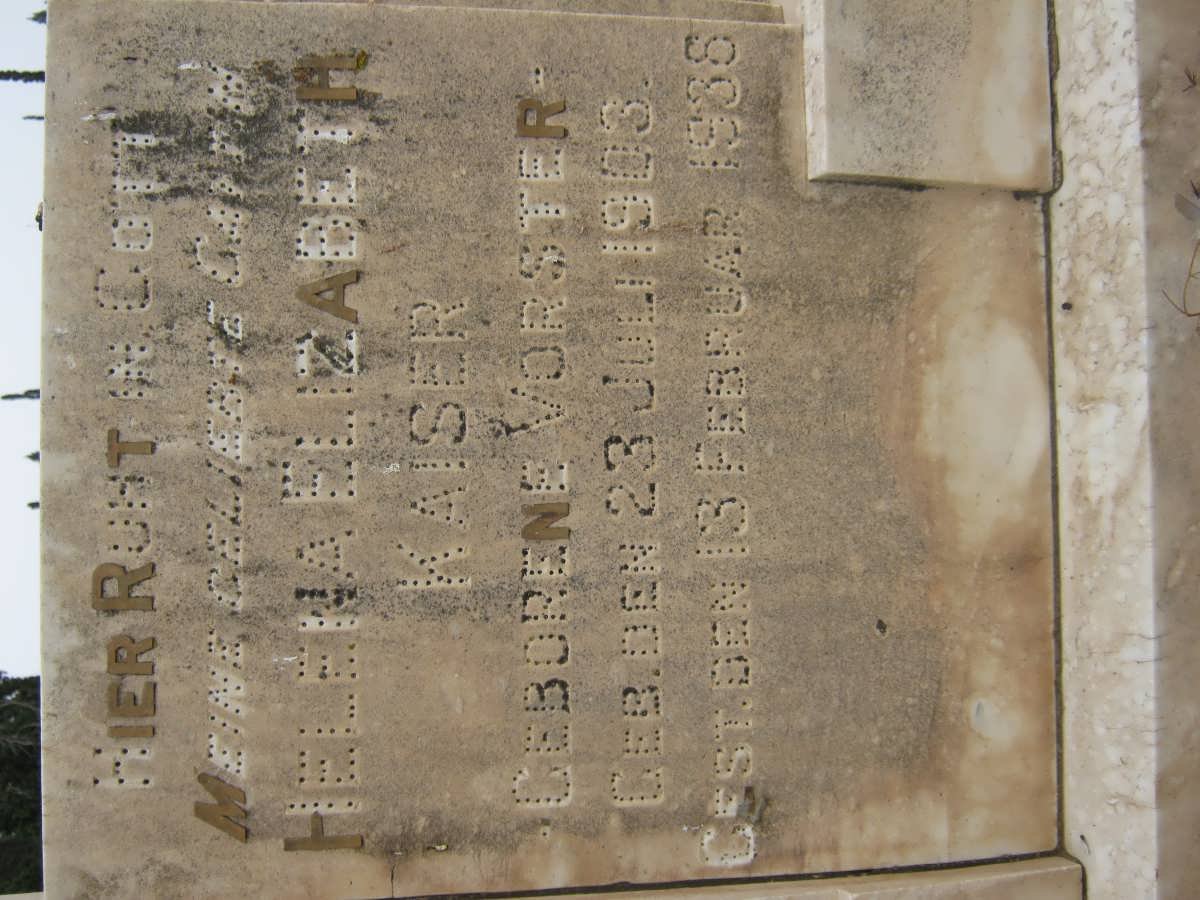 HIER RUHT IN GOTT
MEINE GELIEBTE GATTIN
HELENA ELIZABETH
KAISER
-GEBORENE VORSTER-
GEB. DEN 23 JULI 1903.
GEST. DEN 13 FEBRUAR 1936